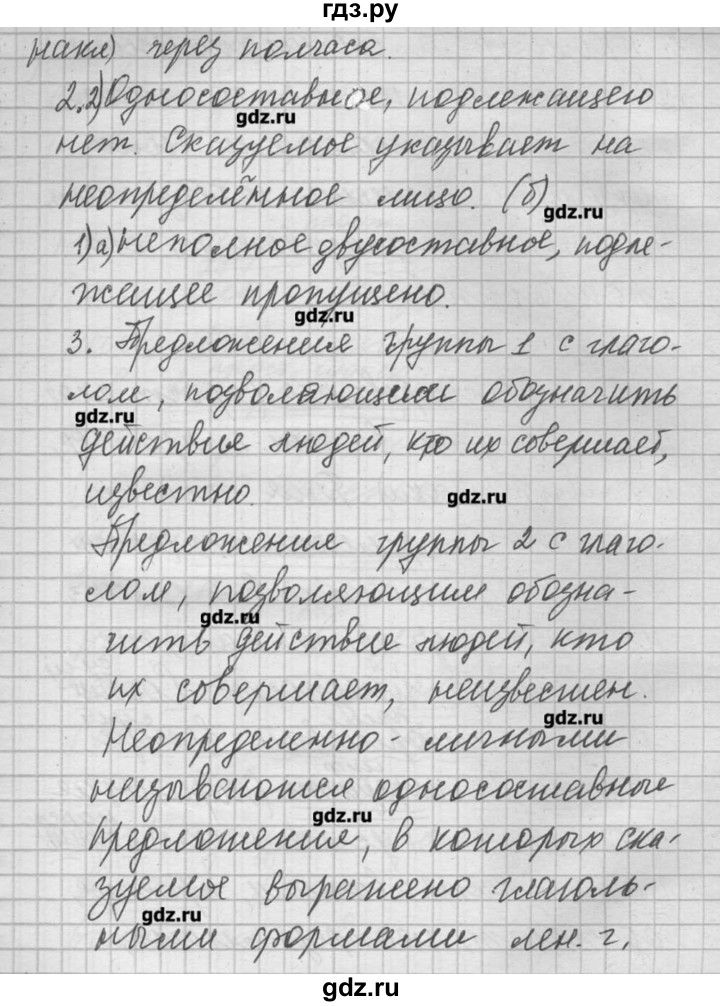 гдз.ру
накл) через полчаса.
2.2) Односоставное, подлежащего
gdz.ru
нет. Сказуемое указывает на
неопределённое лицо. (б)
gdz.ru
1) а) неполное двусоставное, подле-
жащее пропущено.
gdz.ru
3. Предложения группы 1 с глаго-
лом, позволяющим обозначить
gdz.ru
действие людей, кто их совершает,
известно.
gdz.ru
Предложения группы 2 с глаго-
лом, позволяющим обозна-
gdz.ru
чить действие людей, кто
их совершает, неизвестен.
gdz.ru
Неопределенно-личными
называются односоставные
gdz.ru
предложения, в которых ска-
зуемое выражено глаголь-
gdz.ru
ными формами мн. г,
gdz.ru